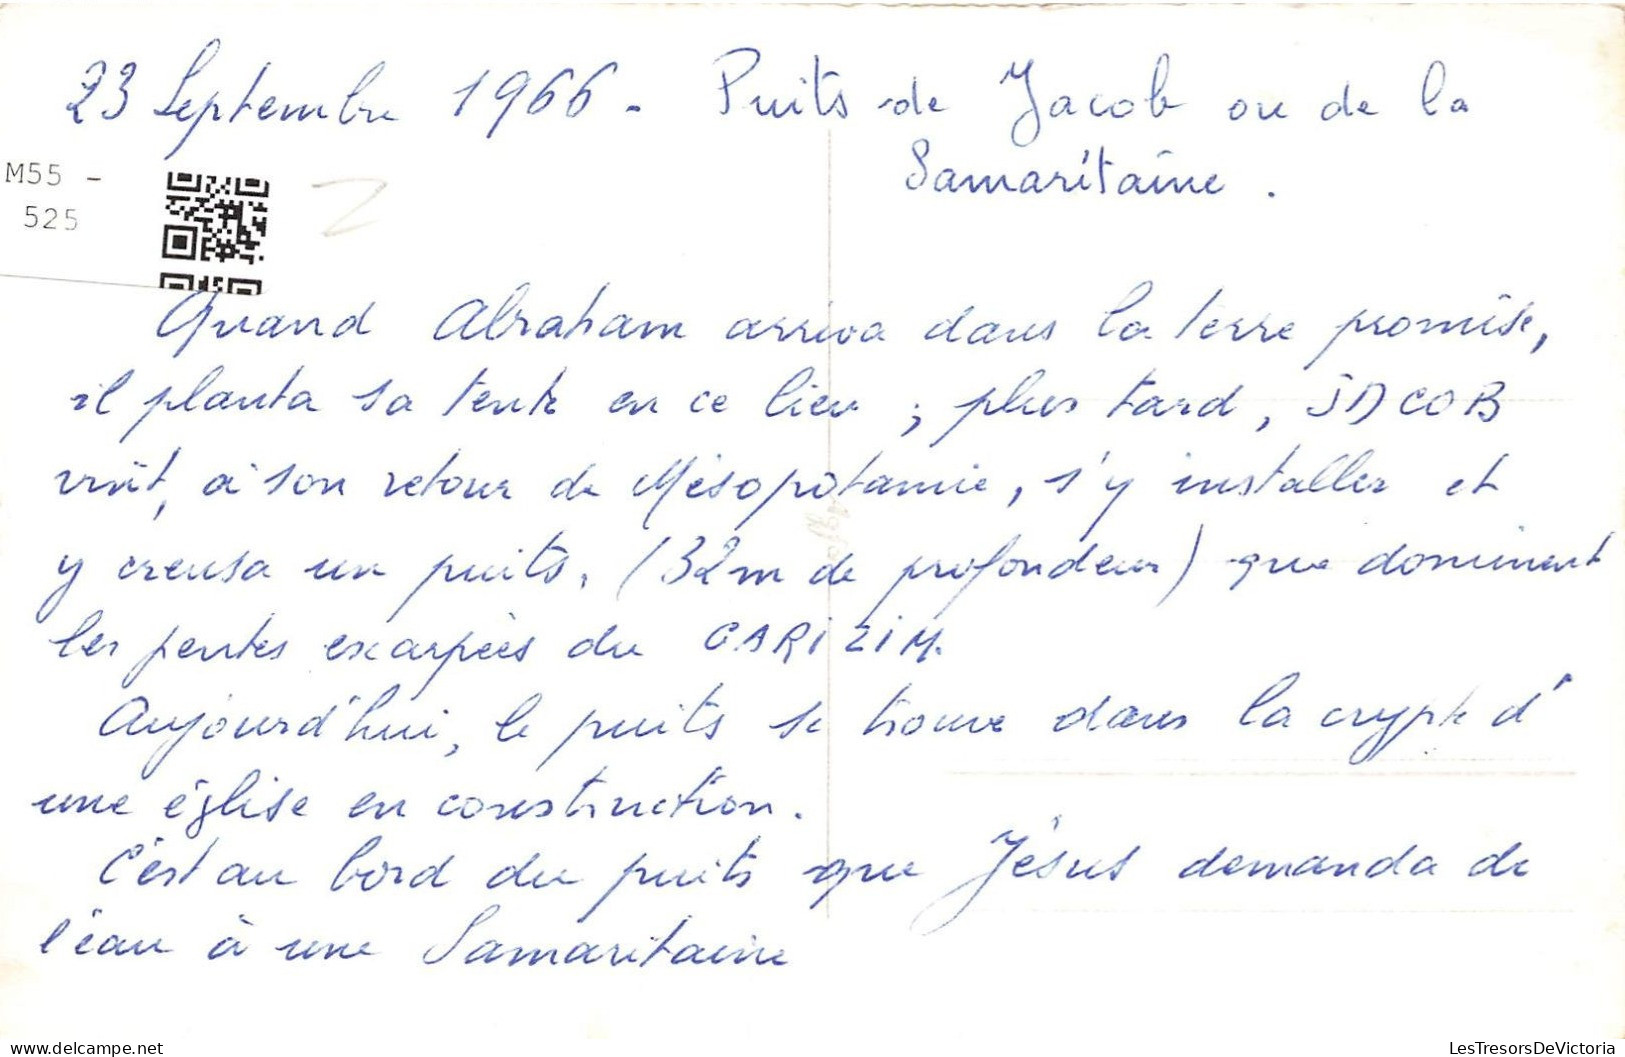 23 Septembre 1966 - Puits de Jacob ou de la
Samaritaine.
M55 -
525
Quand Abraham arriva dans la terre promise,
il planta sa tente en ce lieu ; plus tard, JACOB
vint, à son retour de Mésopotamie, s'y installer et
y creusa un puits, (32m de profondeur) que dominent
les pentes escarpées du GARIZIM.
Aujourd'hui, le puits se trouve dans la crypte d'
une église en construction.
C'est au bord du puits que Jésus demanda de
l'eau à une Samaritaine
delcampe.net
LesTresorsDeVictoria